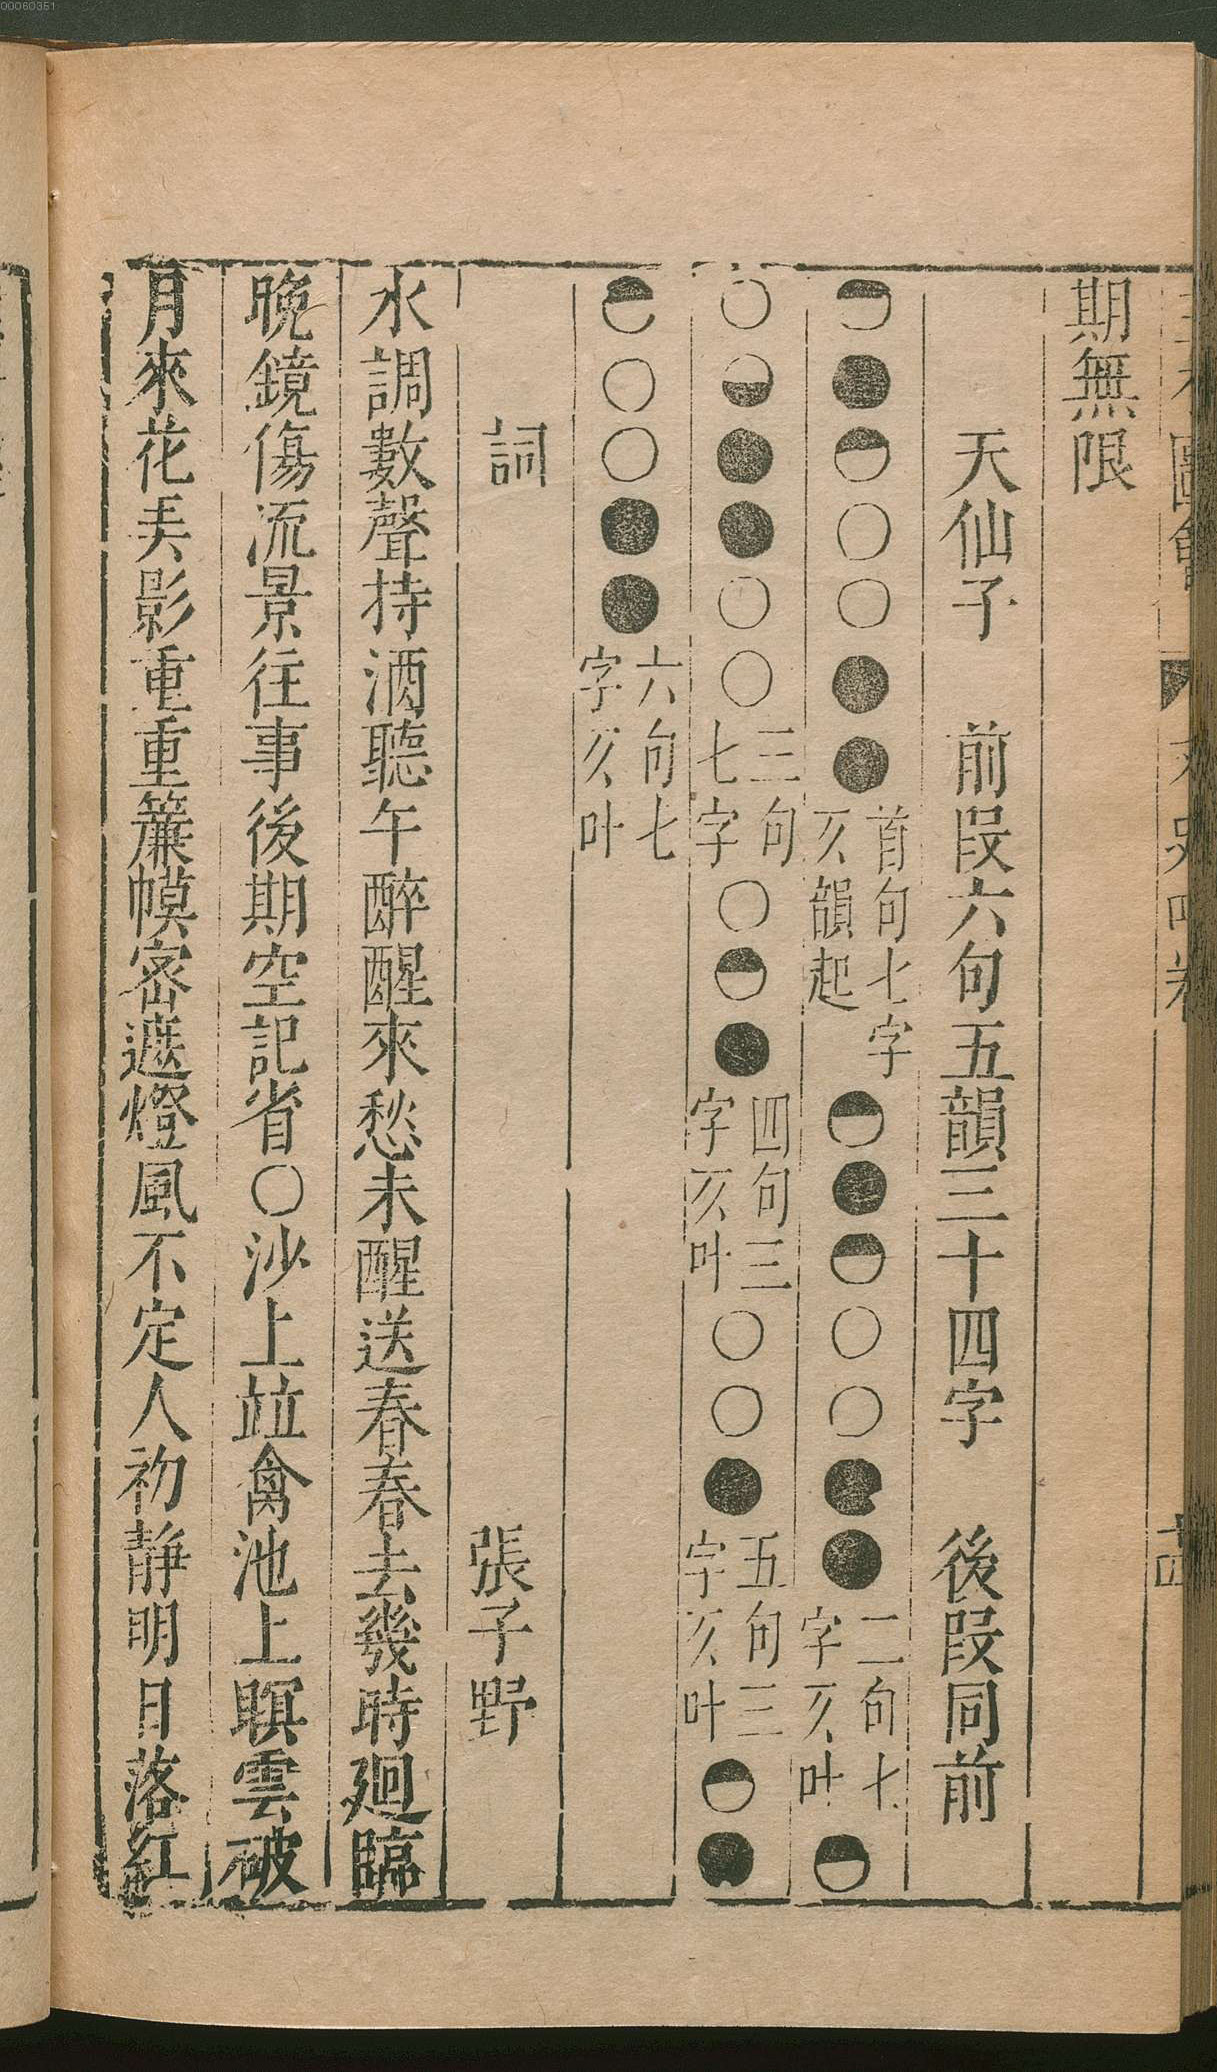 00060351
期無限
天仙子 前段六句五韻三十四字 後段同前
◓●◓○○●●首句七字仄韻起◓●◓○○●●二句七字仄叶◓
○◒●●○○三句七字○◓●四句三字仄叶○○●五句三字仄叶◓●
◓○○●●六句七字仄叶
詞 張子野
水調數聲持酒聽午醉醒來愁未醒送春春去幾時廻臨
晚鏡傷流景往事後期空記省○沙上竝禽池上暝雲破
月來花弄影重重簾幙密遮燈風不定人初静明日落紅